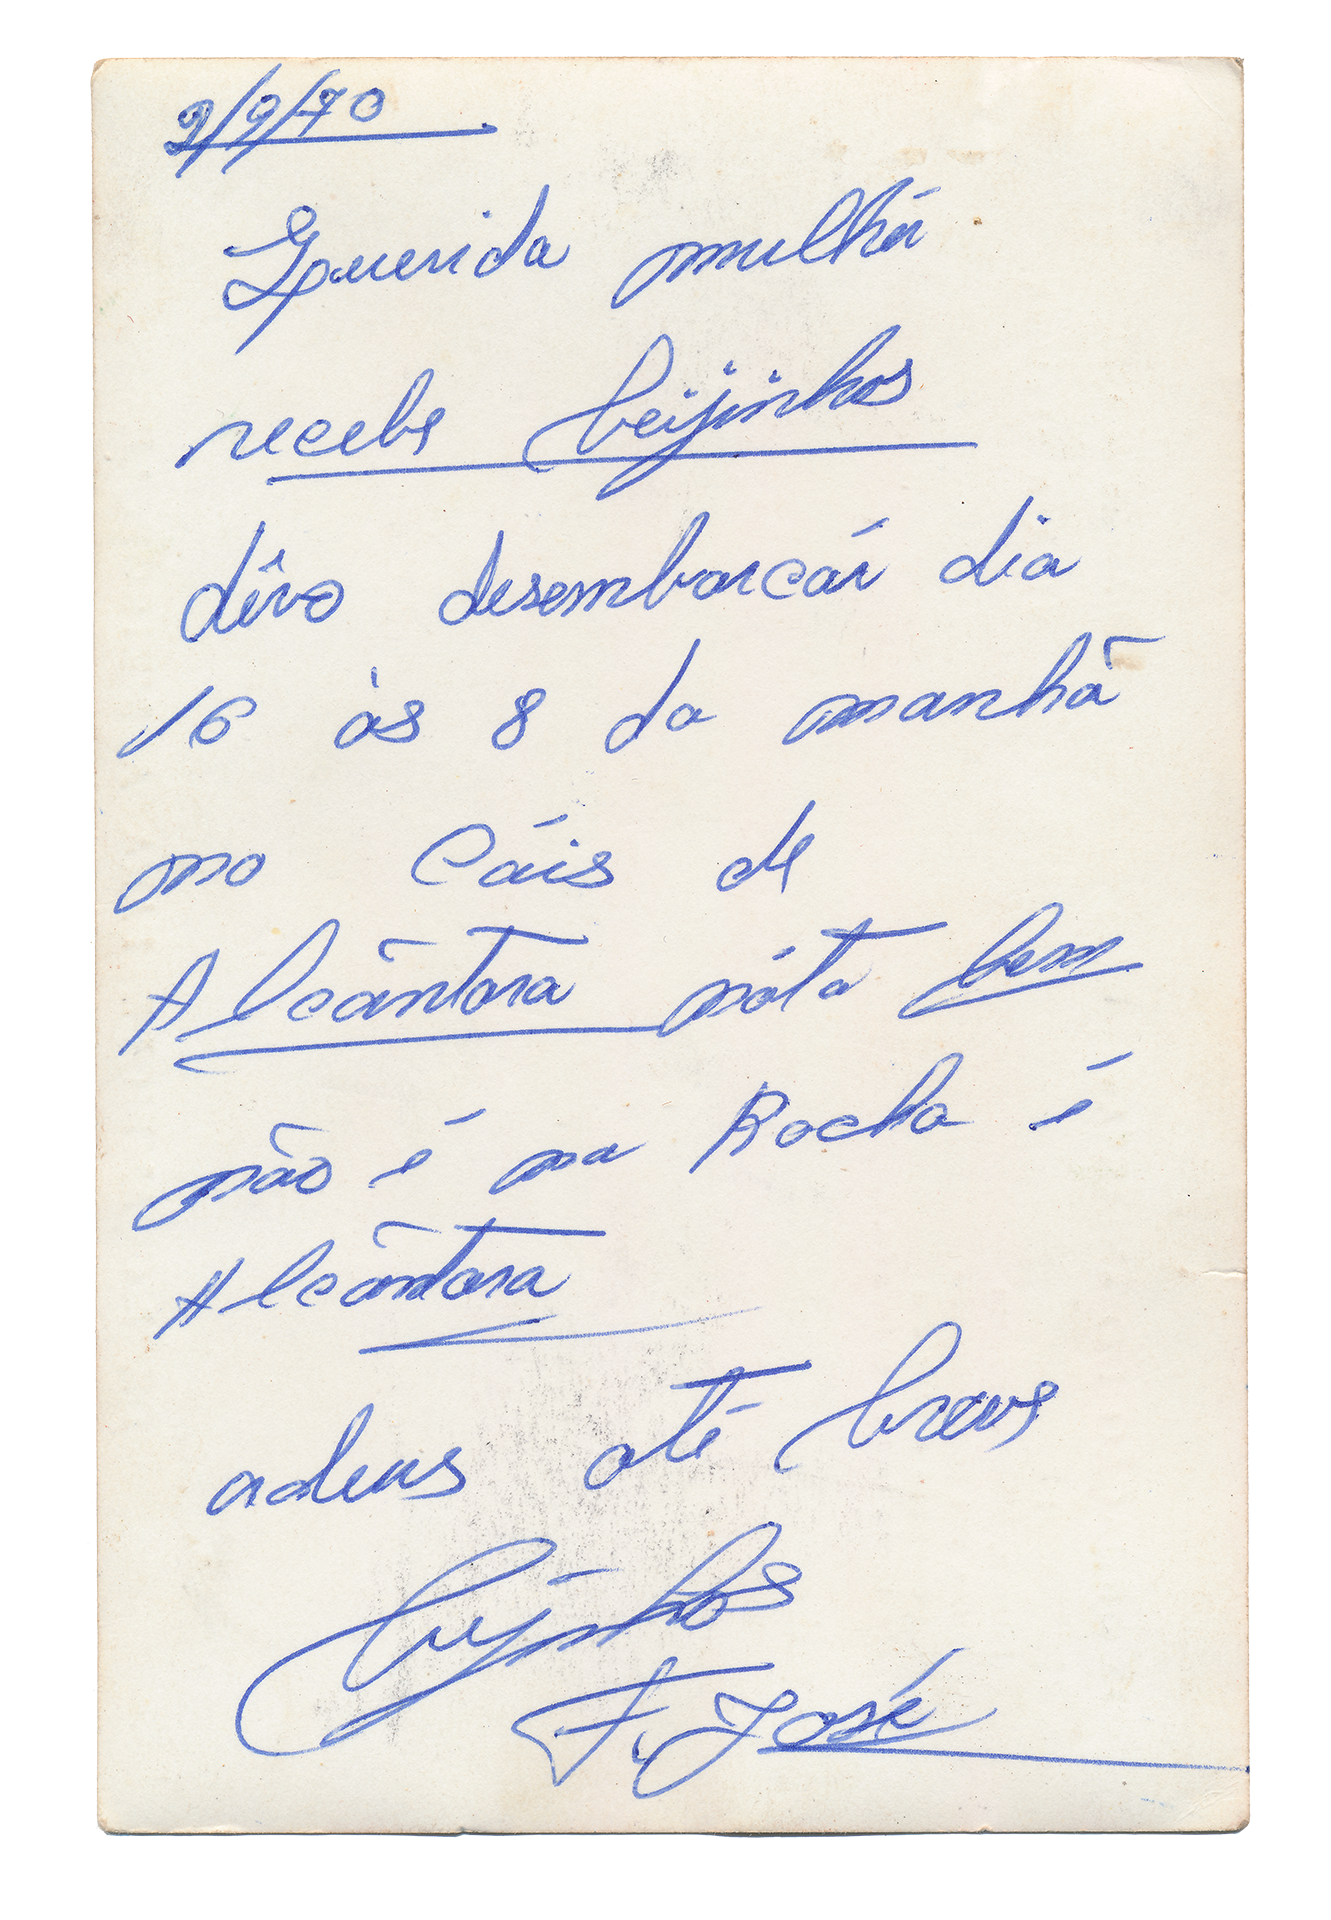 9/9/70
Querida mulhér
recebe beijinhos
divo desembarcár dia
16 às 8 da manhã
no Cáis de
Alcântara nóta bem
não é na Rocha é
Alcântara
adeus até breve
beijinhos
F. José